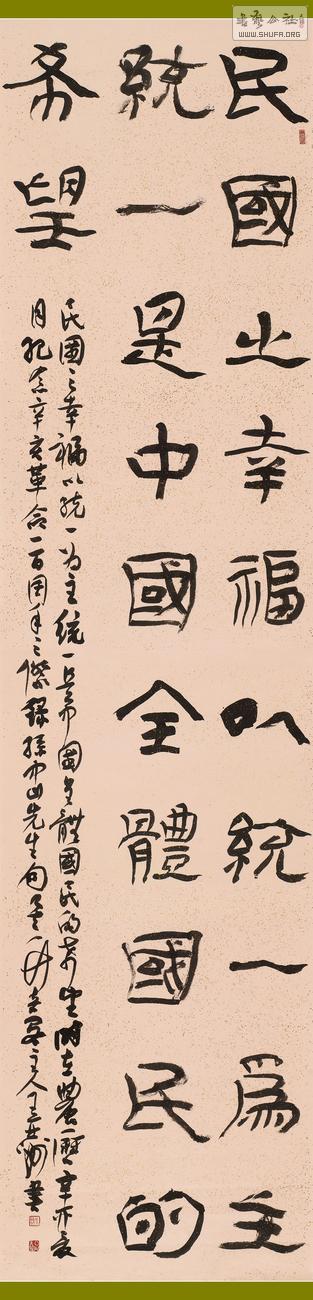 書藝公社
WWW.SHUFA.ORG
民國之幸福以統一爲主
統一是中國全體國民的
希望
民國之幸福以統一为主統一是中國全體國民的希望時在農曆辛卯夏
月紀念辛亥革命一百周年之際錄孫中山先生句主人書